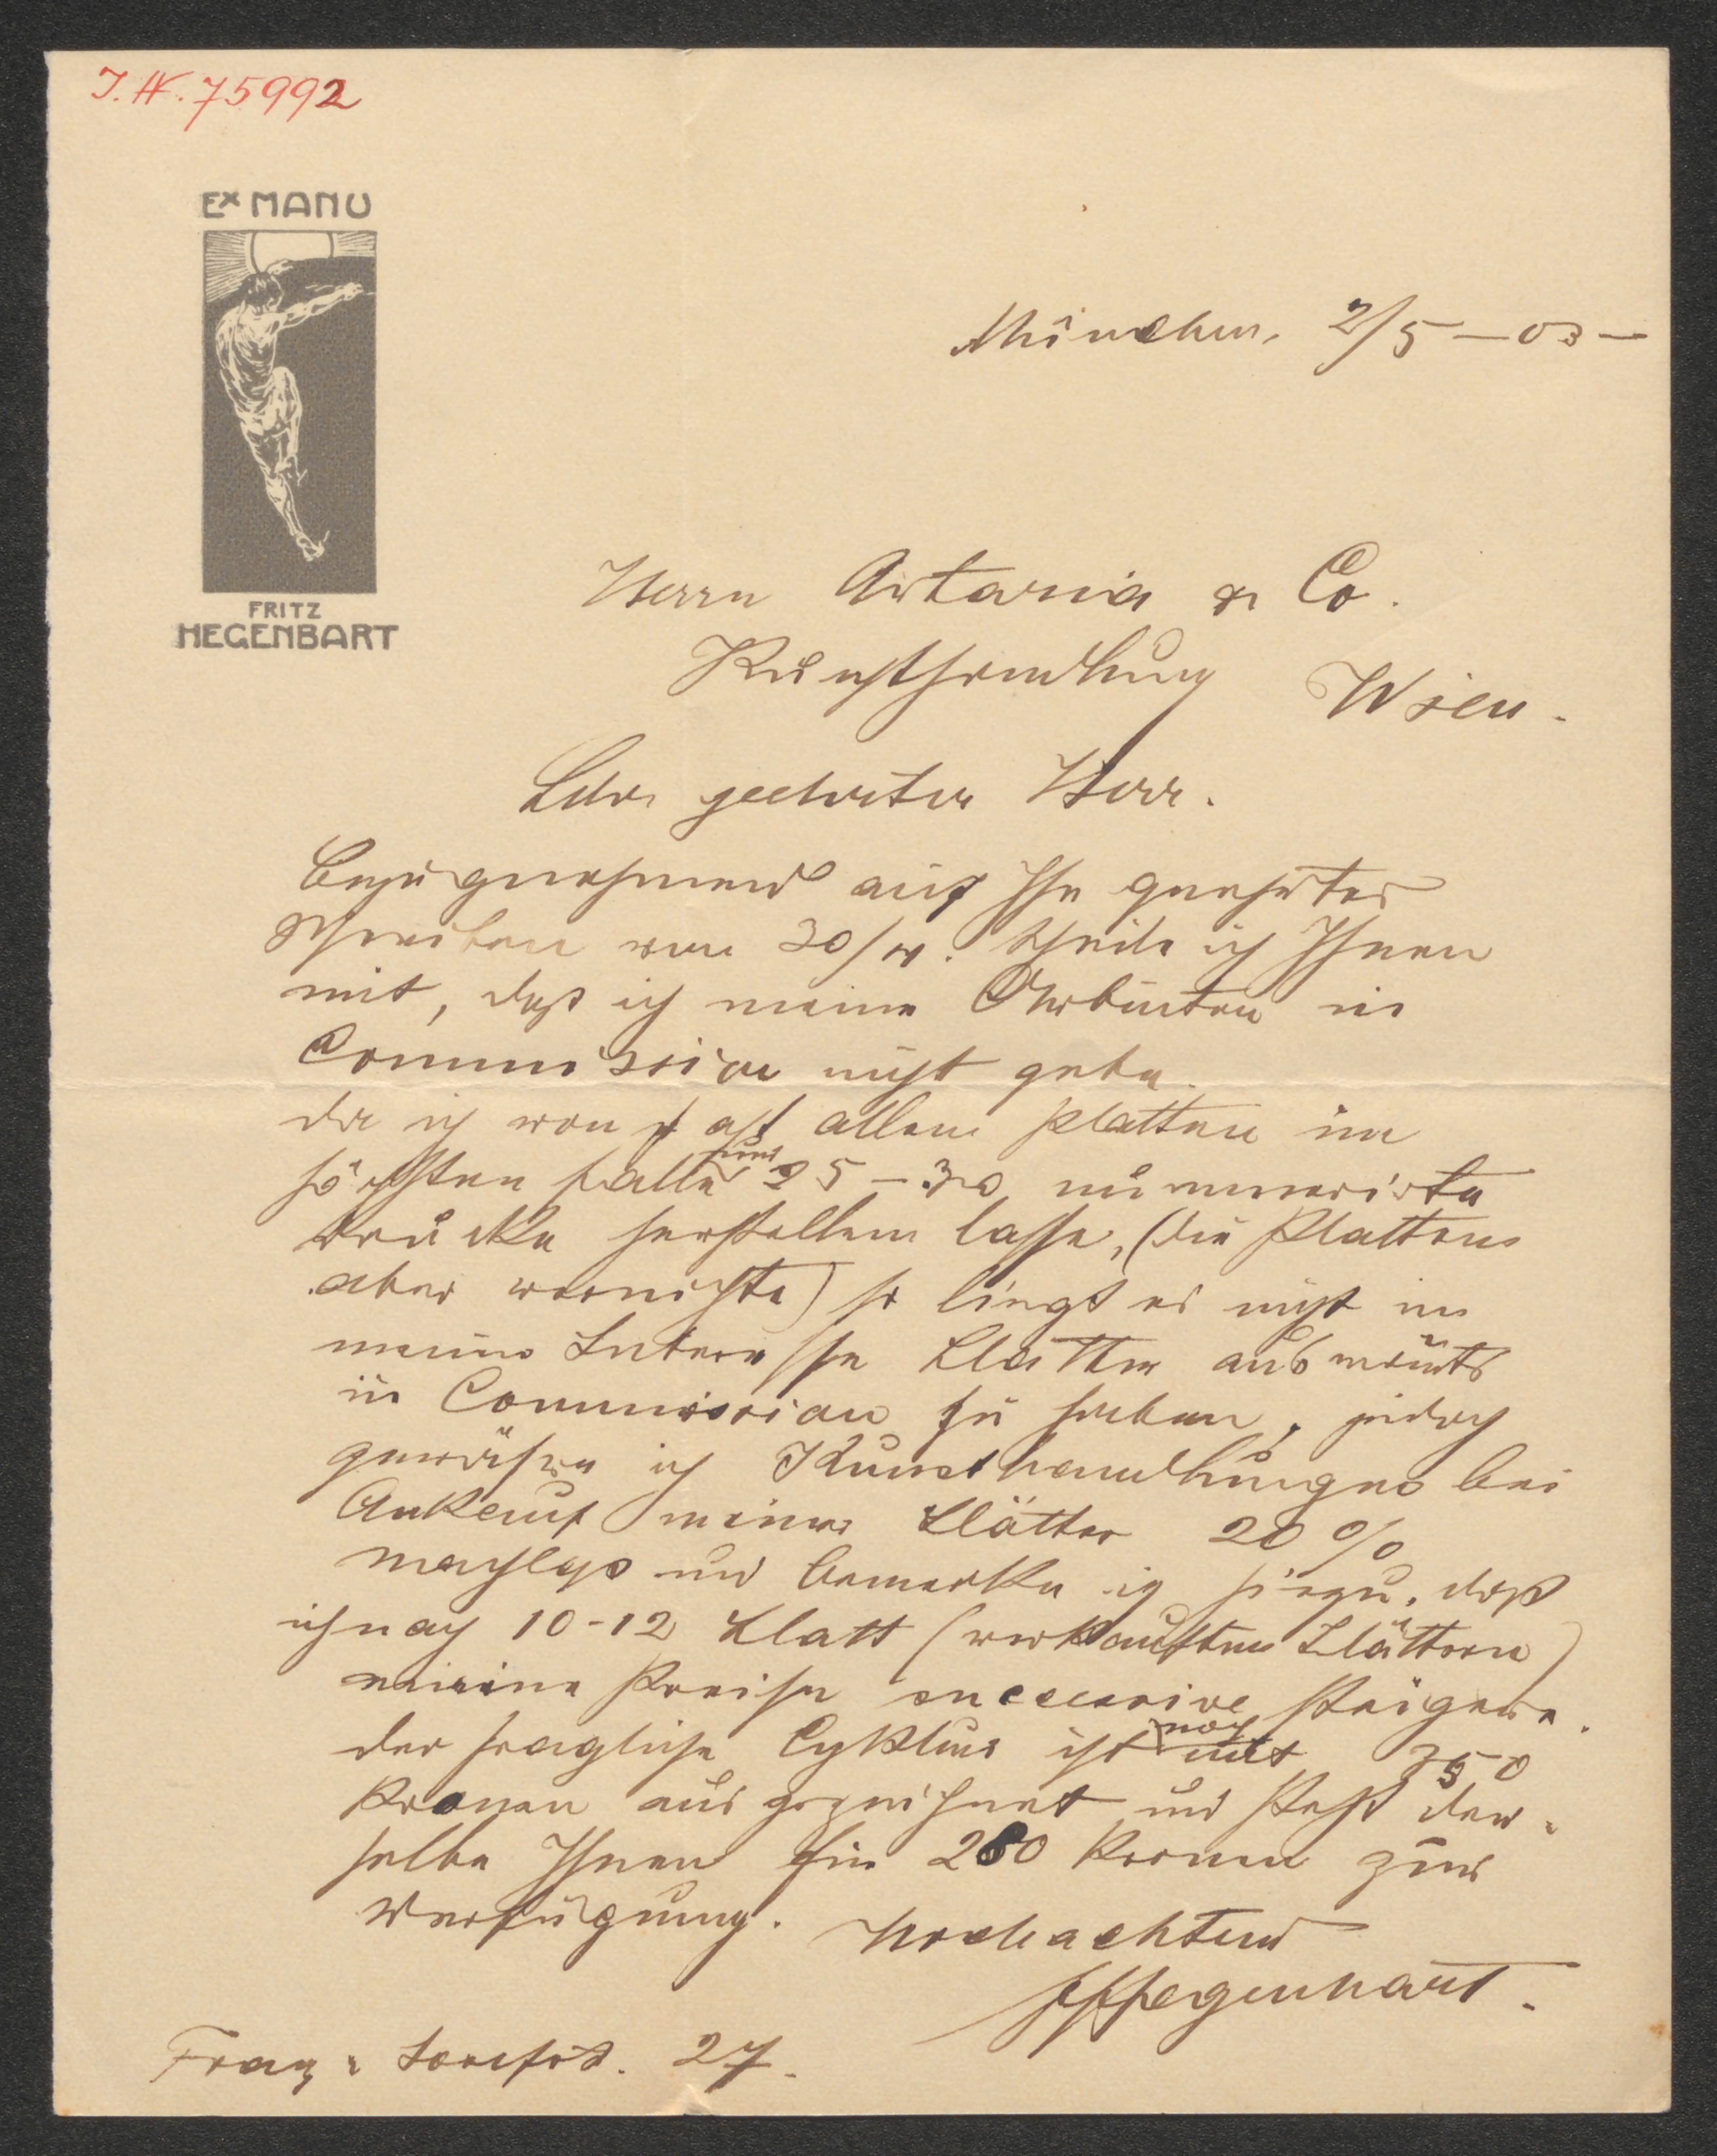 I.N. 75992
EX MANU
FRITZ
HEGENBART
München, 2/5 – 03 –
Herrn Artaria & Co.
Kunsthandlung Wien.
Sehr geehrter Herr.
Bezugnehmend auf Ihr geehrtes
Schreiben vom 30/IV. theile ich Ihnen
mit, daß ich meine Arbeiten in
Commission nicht gebe.
da ich von fast allen Platten im
höchsten Falle nur 25 – 30 nummerirte
Drucke herstellen lasse, (die Platten
aber vernichte) so liegt es nicht im
meine Interesse Blätter auswärts
in Commission zu haben, jedoch
gewähre ich Kunsthandlungen bei
Ankauf meiner Blätter 20 %
Nachlass und bemerke ich hiezu, daß
ich nach 10-12 Blatt (verkauften Blättern)
meine Preise successive steigere.
der fragliche Cyklus ist noch mit 350
Kronen ausgezeichnet und steht der-
selbe Ihnen für 280 Kronen zur
Verfügung. Hochachtend
FHegenbart.
Franz-Josefst. 27.